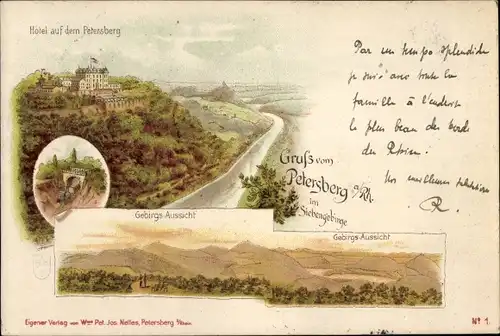 Hotel auf dem Petersberg
Par un temps splendide
je suis avec toute la
famille à l'endroit
le plus beau des bords
du Rhin.
Nos meilleures salutations
R.
Gruß vom
Petersberg a/Rh.
im
Siebengebirge
Gebirgs-Aussicht
Gebirgs-Aussicht
Eigener Verlag von Wwe Pet. Jos. Nelles, Petersberg b/Rhein.
No 1.